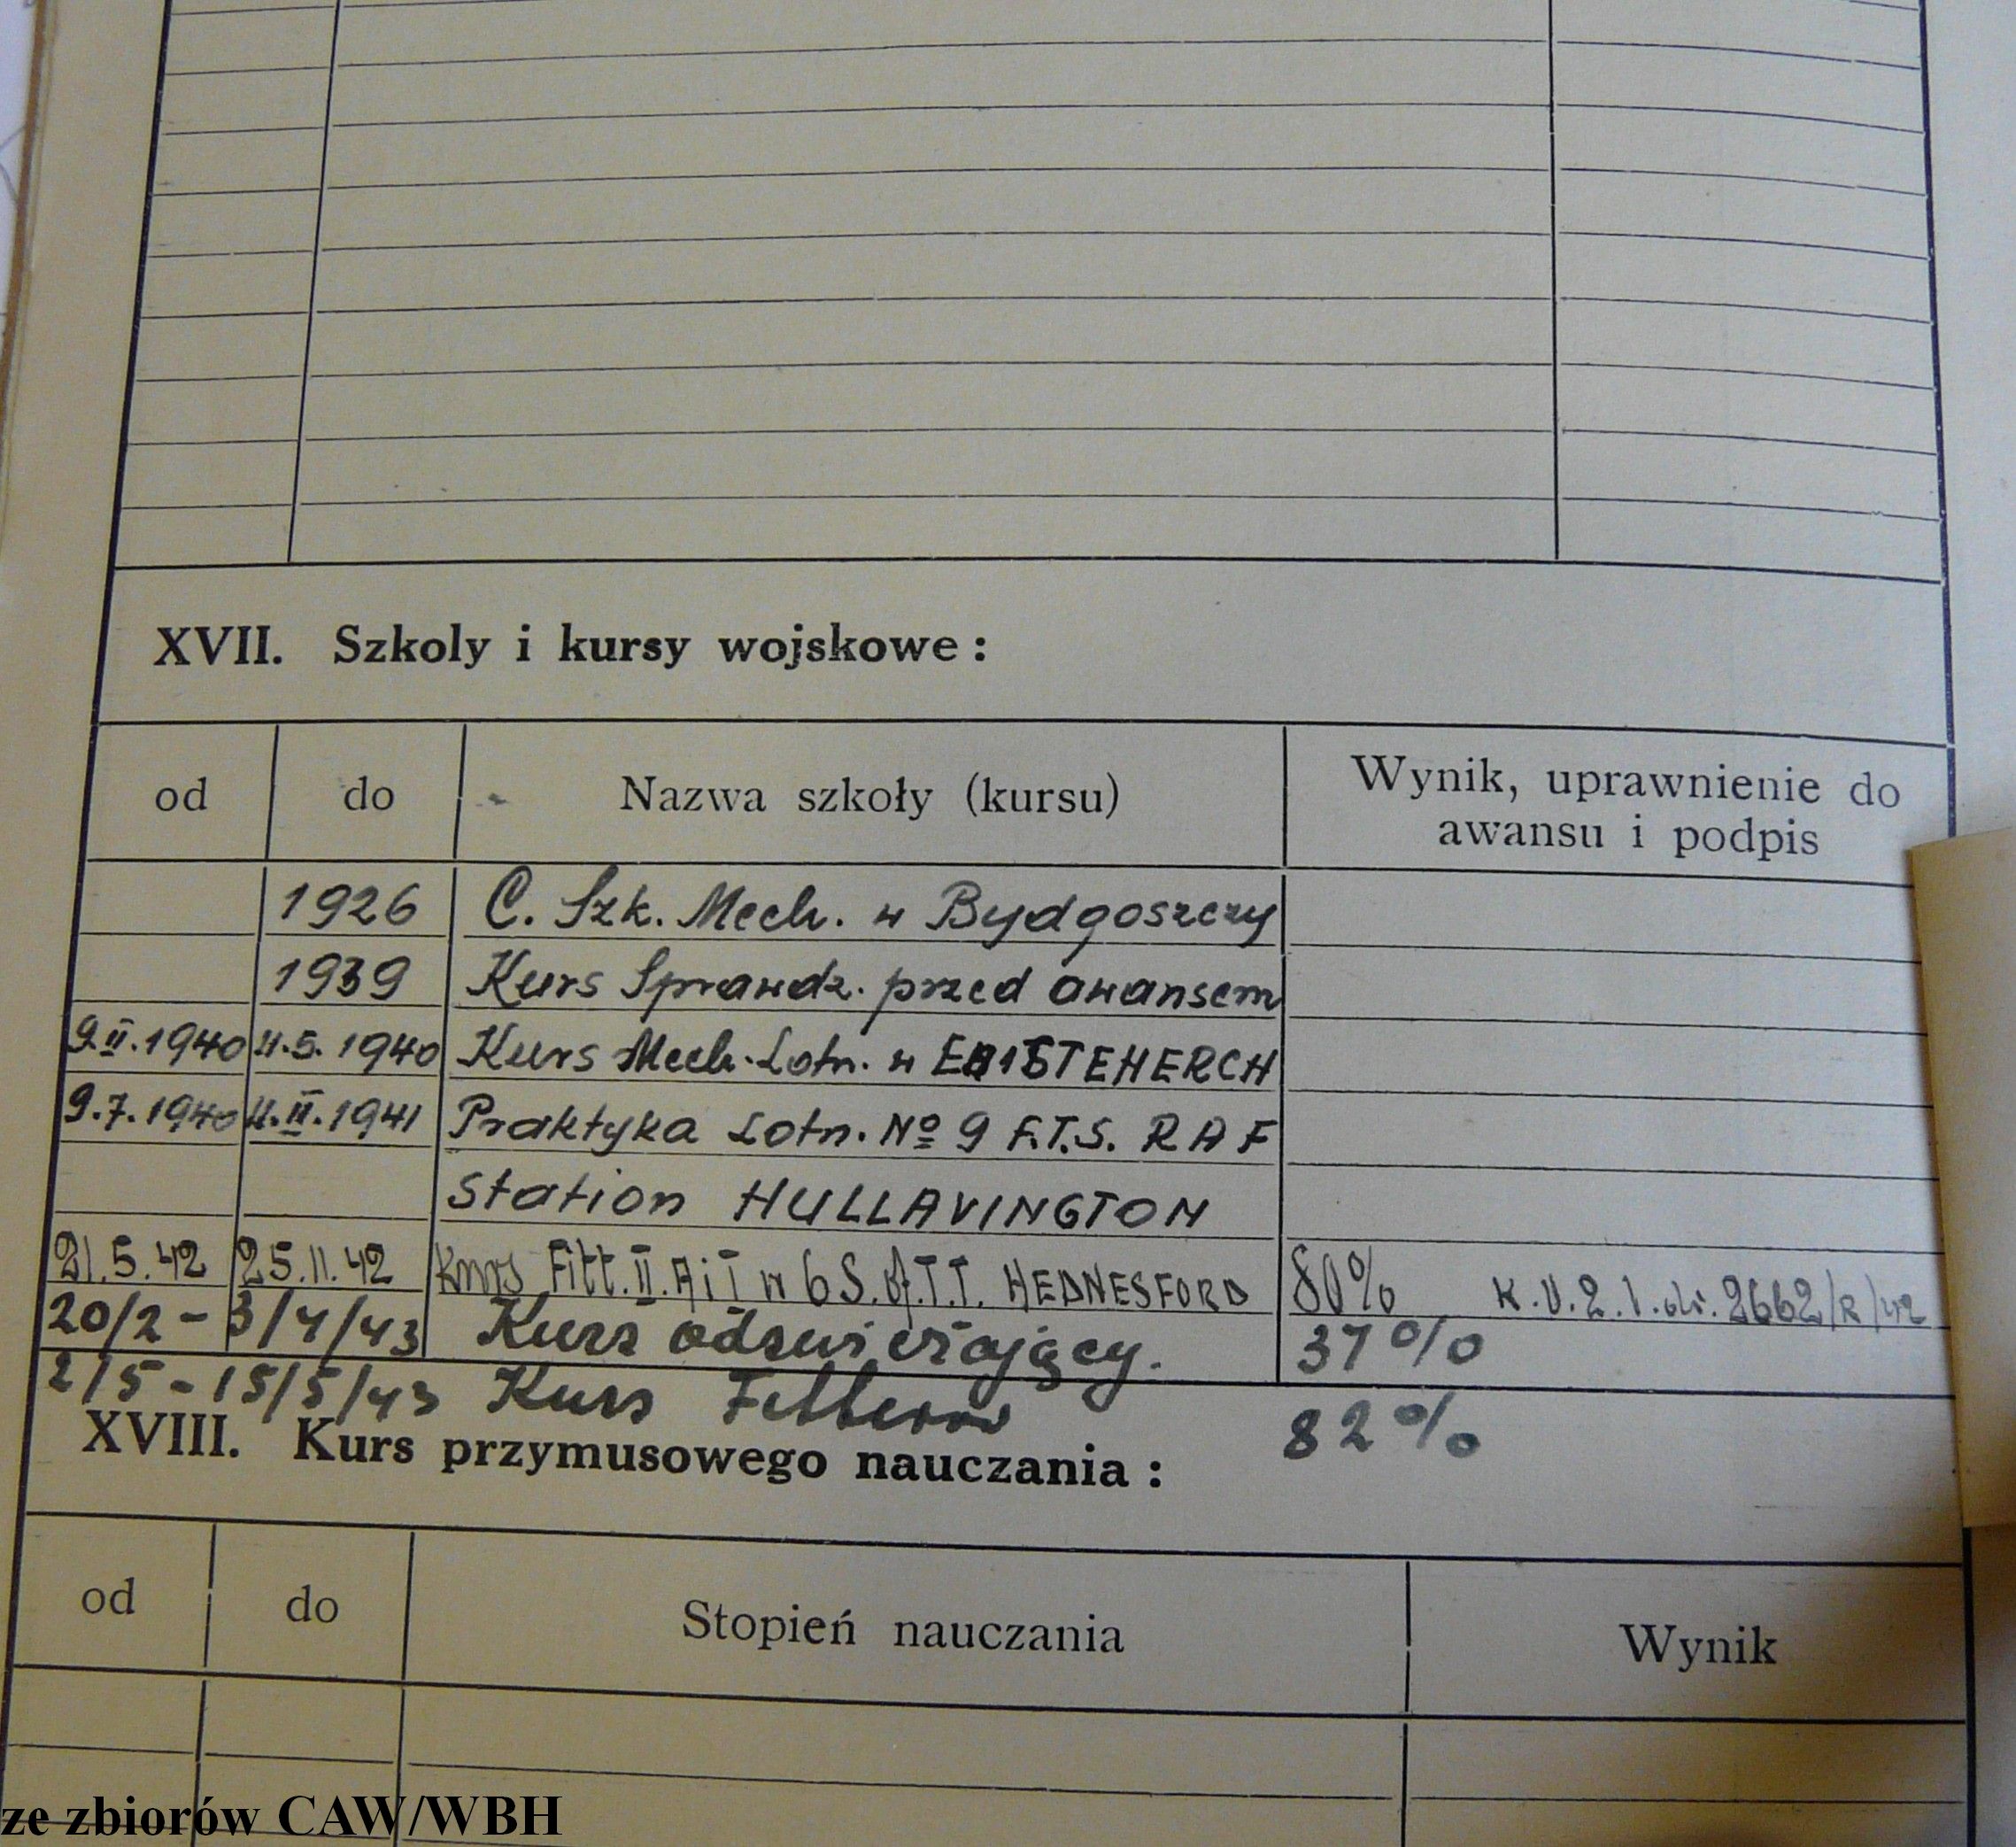 XVII. Szkoly i kursy wojskowe :
od do Nazwa szkoły (kursu) Wynik, uprawnienie do
awansu i podpis
1926 C. Szk. Mech. w Bydgoszczy
1939 Kurs Sprawdz. przed awansem
9.II.1940 4.5.1940 Kurs Mech. Lotn. w
9.7.1940 4.II.1941 Praktyka Lotn. No 9 F.T.S. RAF
Station HULLAVINGTON
21.5.42 25.11.42 Kurs Fitt. II. A i I w 6 S. of. T.T. HEDNESFORD 80% K.U.2.1. 2662/R/42
20/2 - 3/4/43 Kurs odświerzający. 37%
2/5 - 15/5/43 Kurs 82%
XVIII. Kurs przymusowego nauczania :
od do Stopień nauczania Wynik
ze zbiorów CAW/WBH